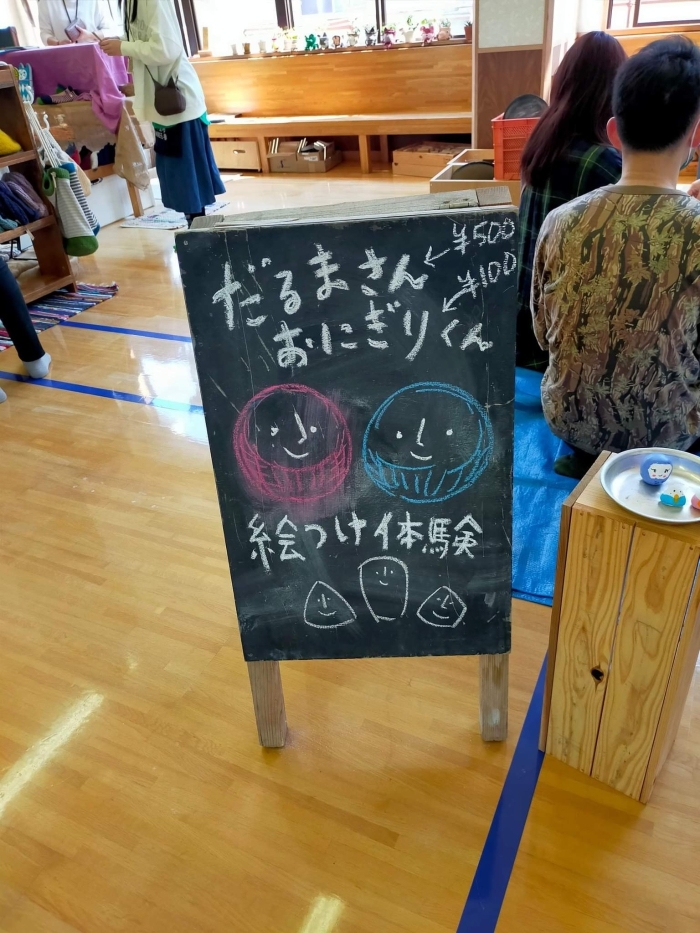 だるまさん←¥500
おにぎりくん↙¥100
絵つけ体験